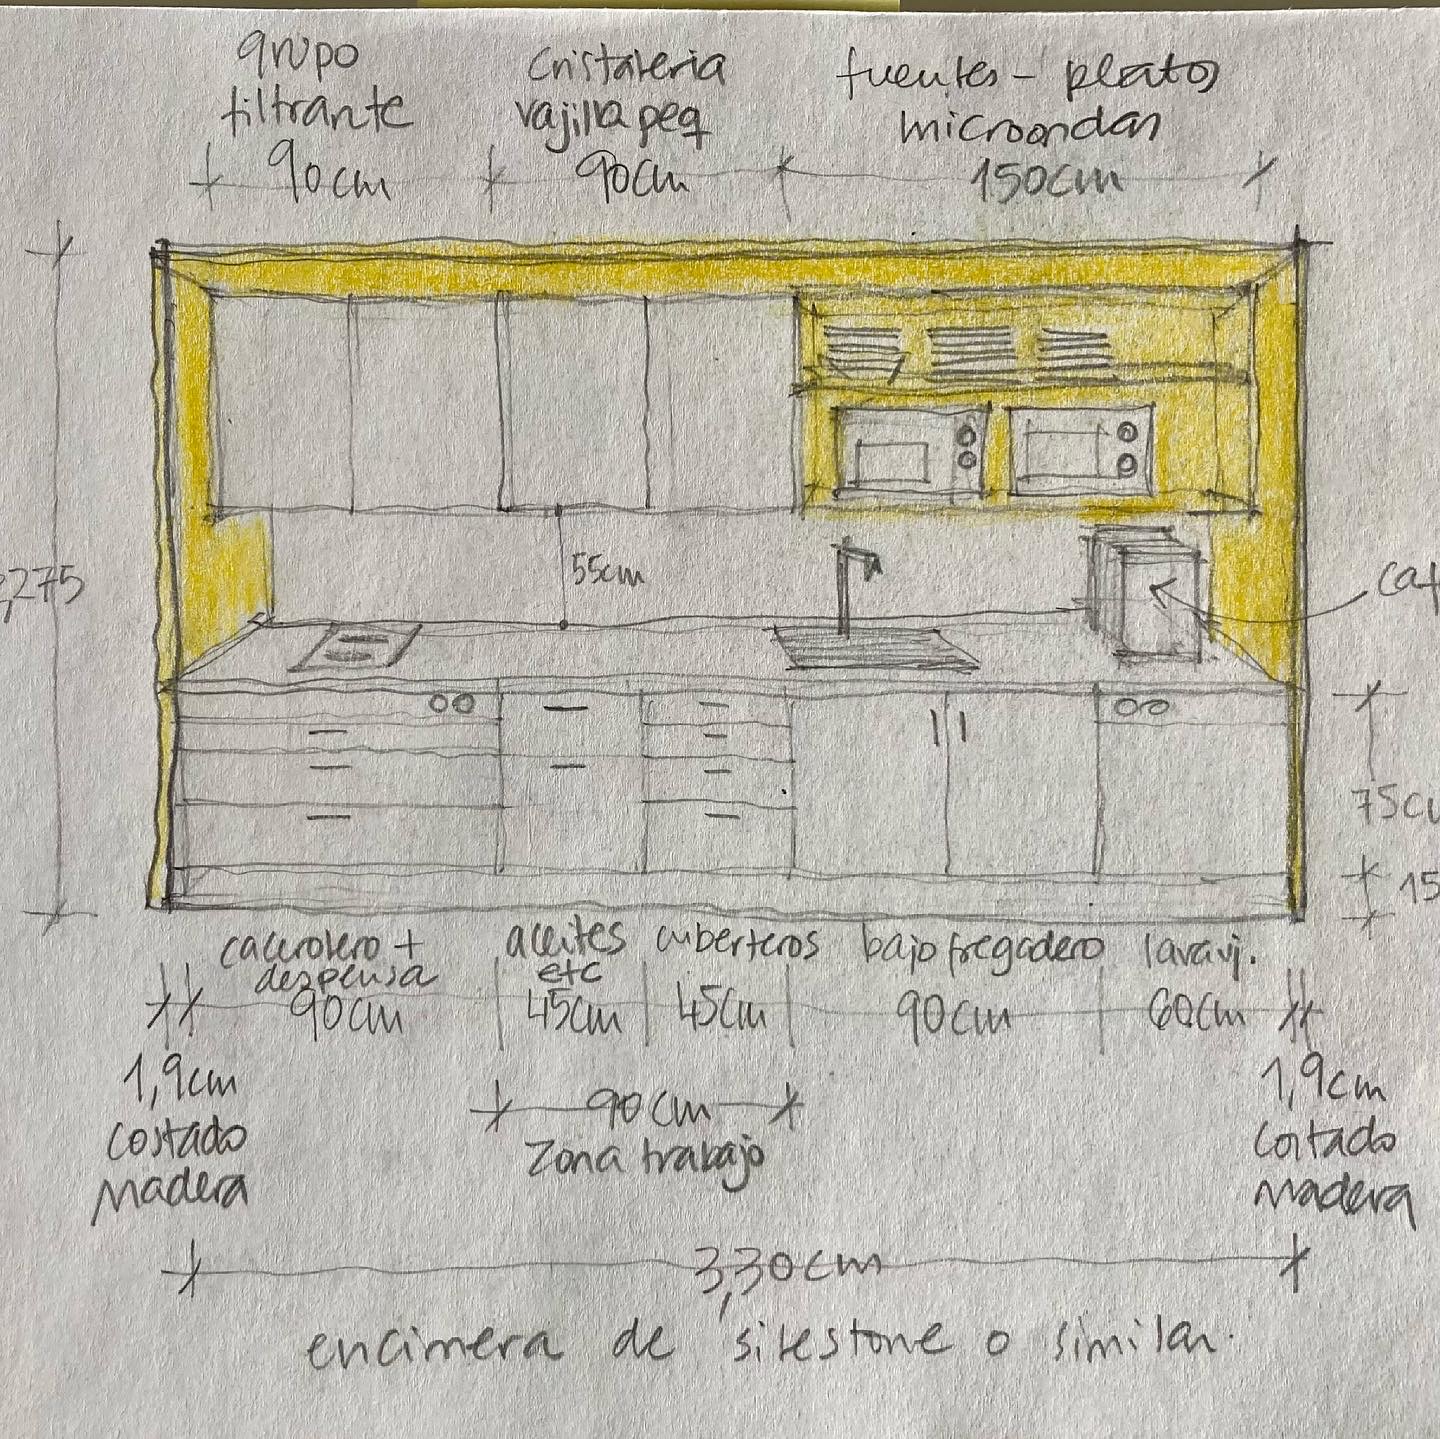 grupo
filtrante
90cm
Cristaleria
vajilla peq
90cm
fuentes - platos
microondas
150cm
,275
55cm
caf
75cm
15
cacerolero +
despensa
90cm
aceites
etc
45cm
cuberteros
45cm
bajo fregadero
90cm
lavavj.
60cm
1,9cm
costado
madera
90cm
Zona trabajo
1,9cm
costado
madera
3,30cm
encimera de silestone o similar.